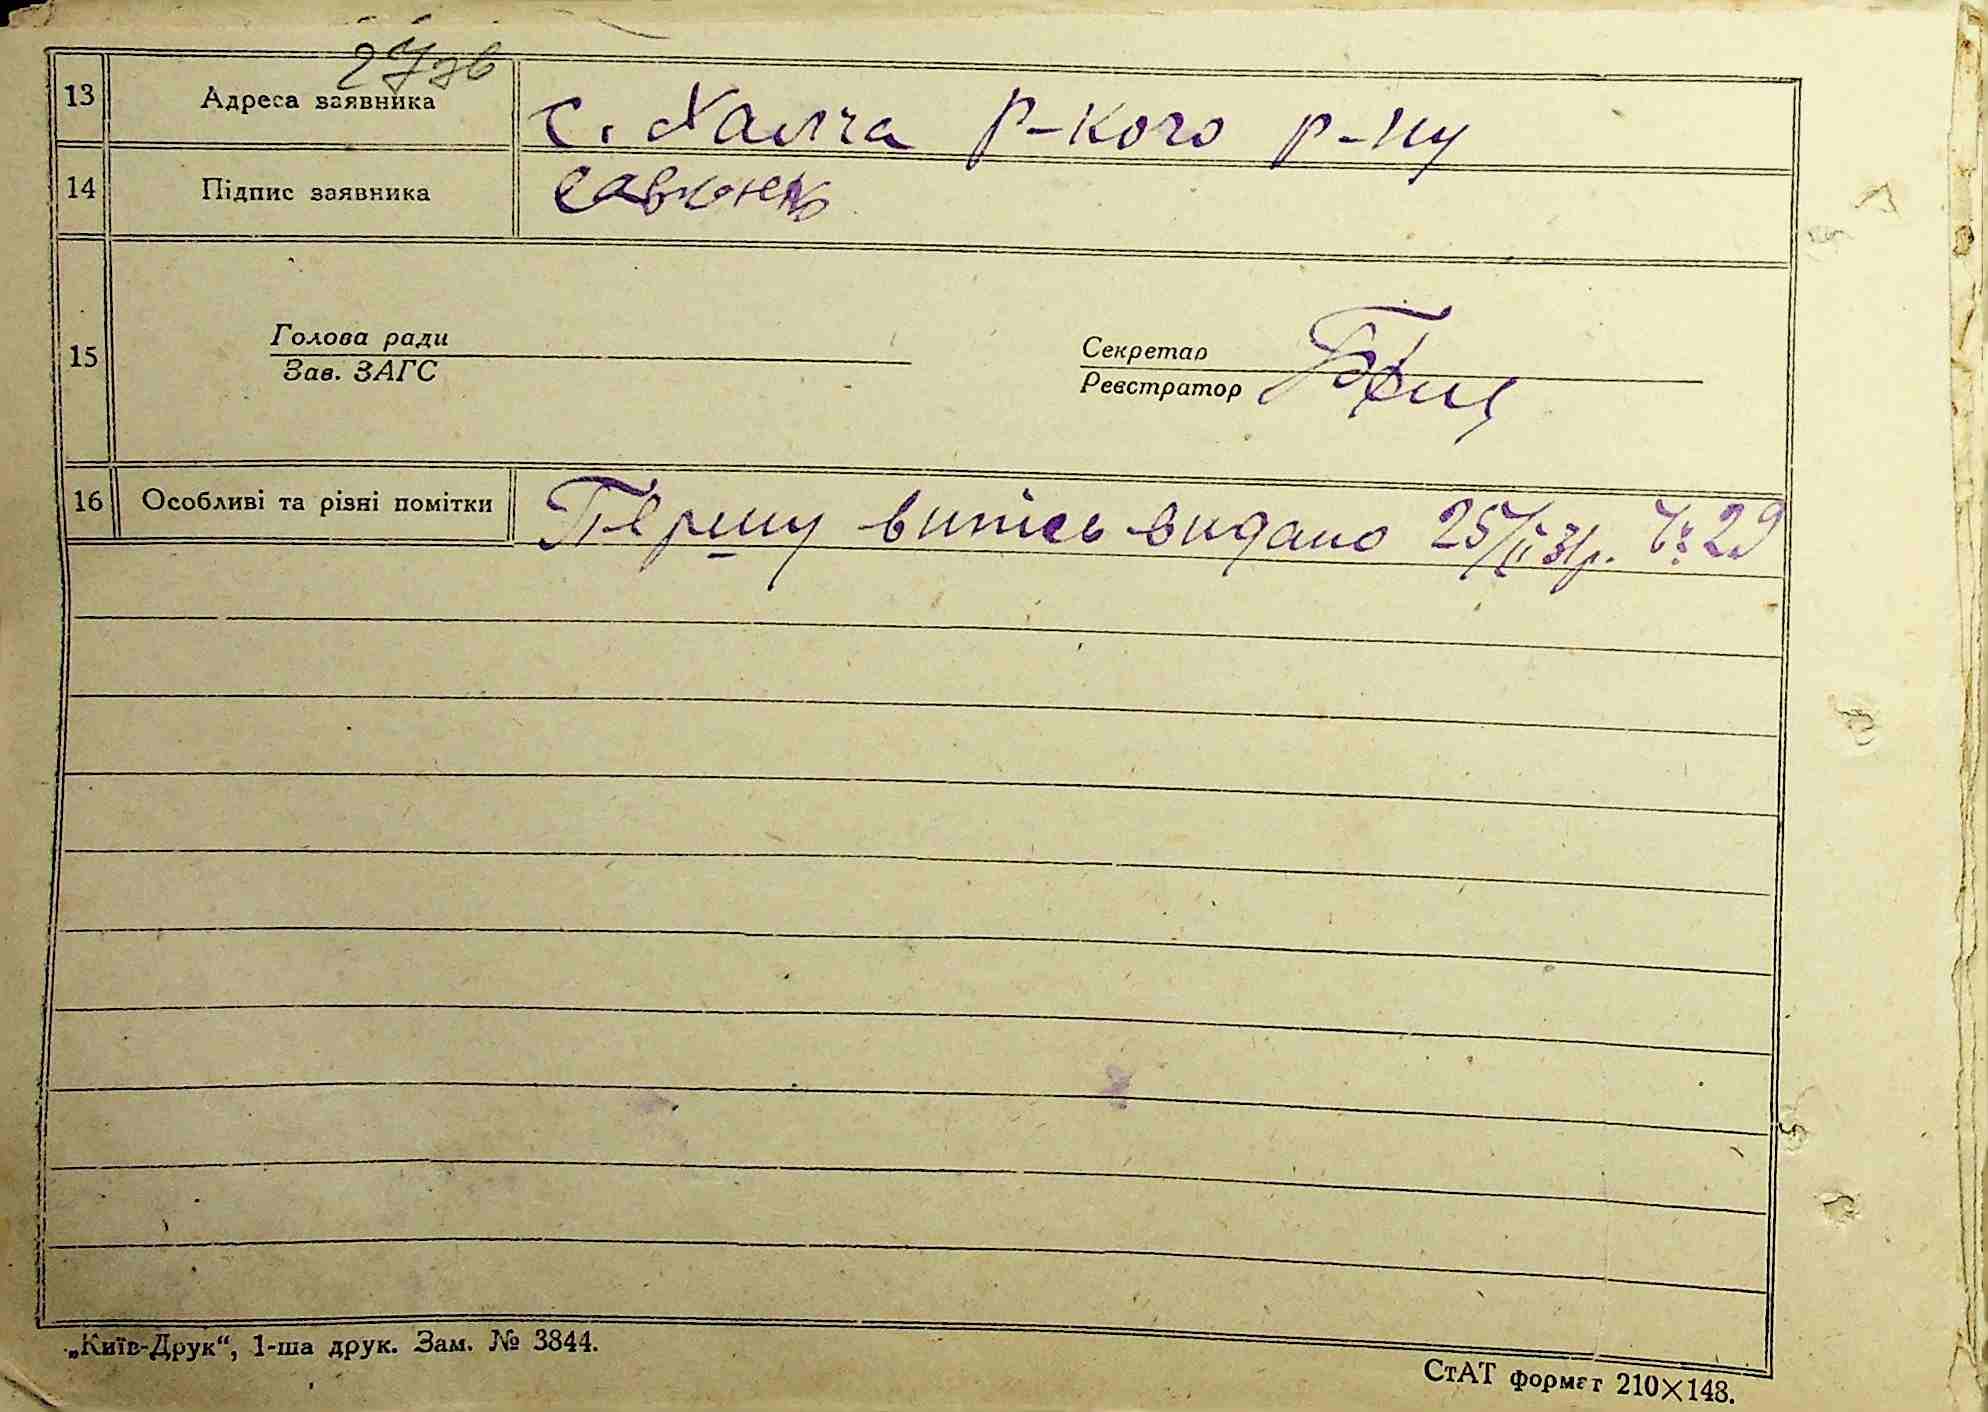 27зв
13 Адреса заявника с. Халча Р-кого р-ну
14 Підпис заявника
15 Голова ради Секретар
Зав. ЗАГС Реєстратор
16 Особливі та різні помітки Першу випісь видано 25/II 31р. № 29
„Київ-Друк“, 1-ша друк. Зам. № 3844.
СтАТ формат 210×148.